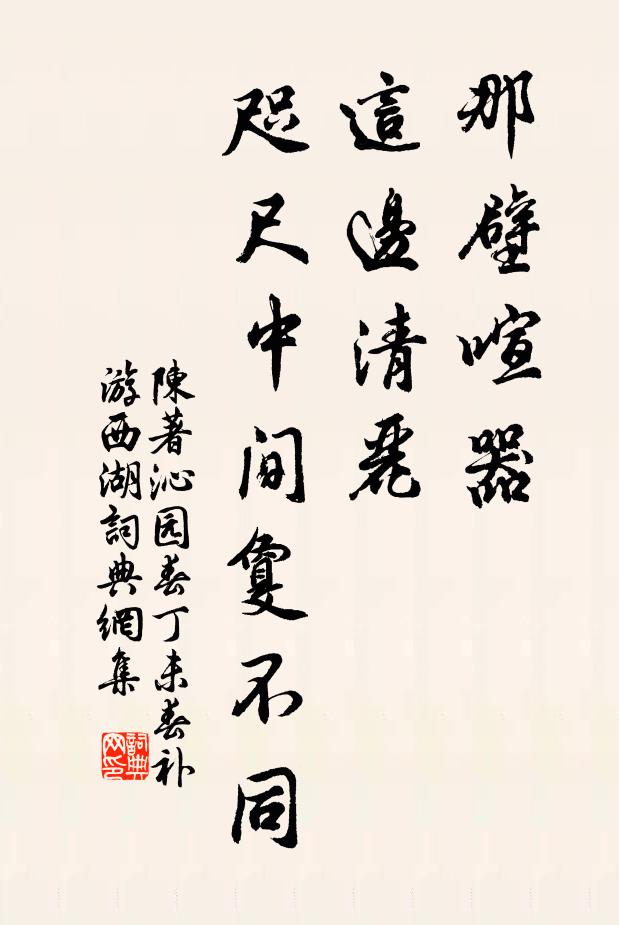 那壁喧嚣
這邊清麗
咫尺中間夐不同
陳著沁园春丁未春补
游西湖詞典網集
詞典网印